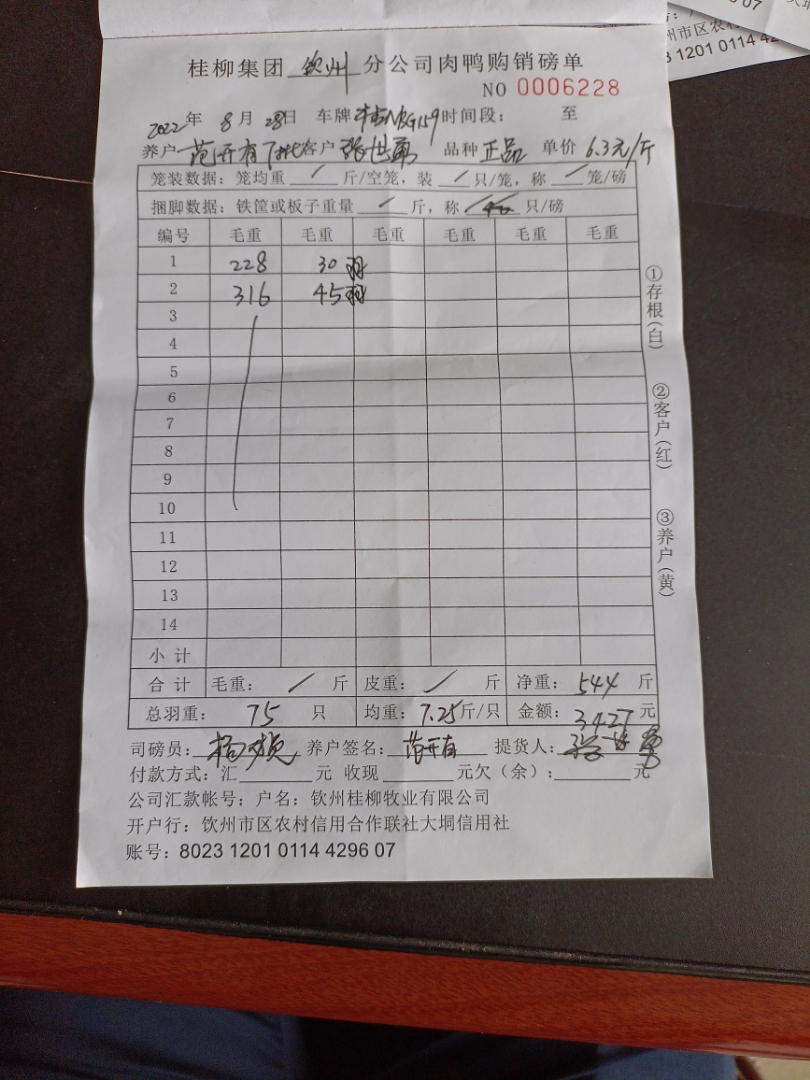 桂柳集团 钦州 分公司肉鸭购销磅单
NO 0006228
2022年 8月 28日 车牌 时间段： 至
养户 范开有 客户 张世勇 品种 正品 单价 6.3元/斤
笼装数据：笼均重 / 斤/空笼，装 / 只/笼，称 / 笼/磅
捆脚数据：铁筐或板子重量 / 斤，称 只/磅
编号 毛重 毛重 毛重 毛重 毛重 毛重
1 228 30羽
2 316 45羽
3
4
5
6
7
8
9
10
11
12
13
14
小计
合计 毛重： / 斤 皮重： / 斤 净重： 544 斤
总羽重： 75 只 均重： 7.25斤/只 金额： 3427元
司磅员： 养户签名： 范开有 提货人： 张世勇
付款方式：汇 元 收现 元欠（余）： 元
公司汇款帐号：户名：钦州桂柳牧业有限公司
开户行：钦州市区农村信用合作联社大垌信用社
账号：8023 1201 0114 4296 07
①存根(白)
②客户(红)
③养户(黄)